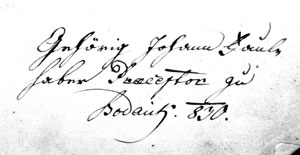 Gehörig Johann Haul-
haber Præceptor zu
Bodant. 830.